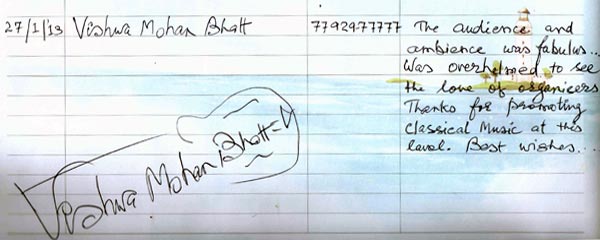 27/1/13 Vishwa Mohan Bhatt 77929-77777 The audience and
ambience was fabulus...
Was overhelmed to see
the love of organicers
Thanks for promoting
Classical Music at this
laval. Best wishes...
Vishwa Mohan Bhatt